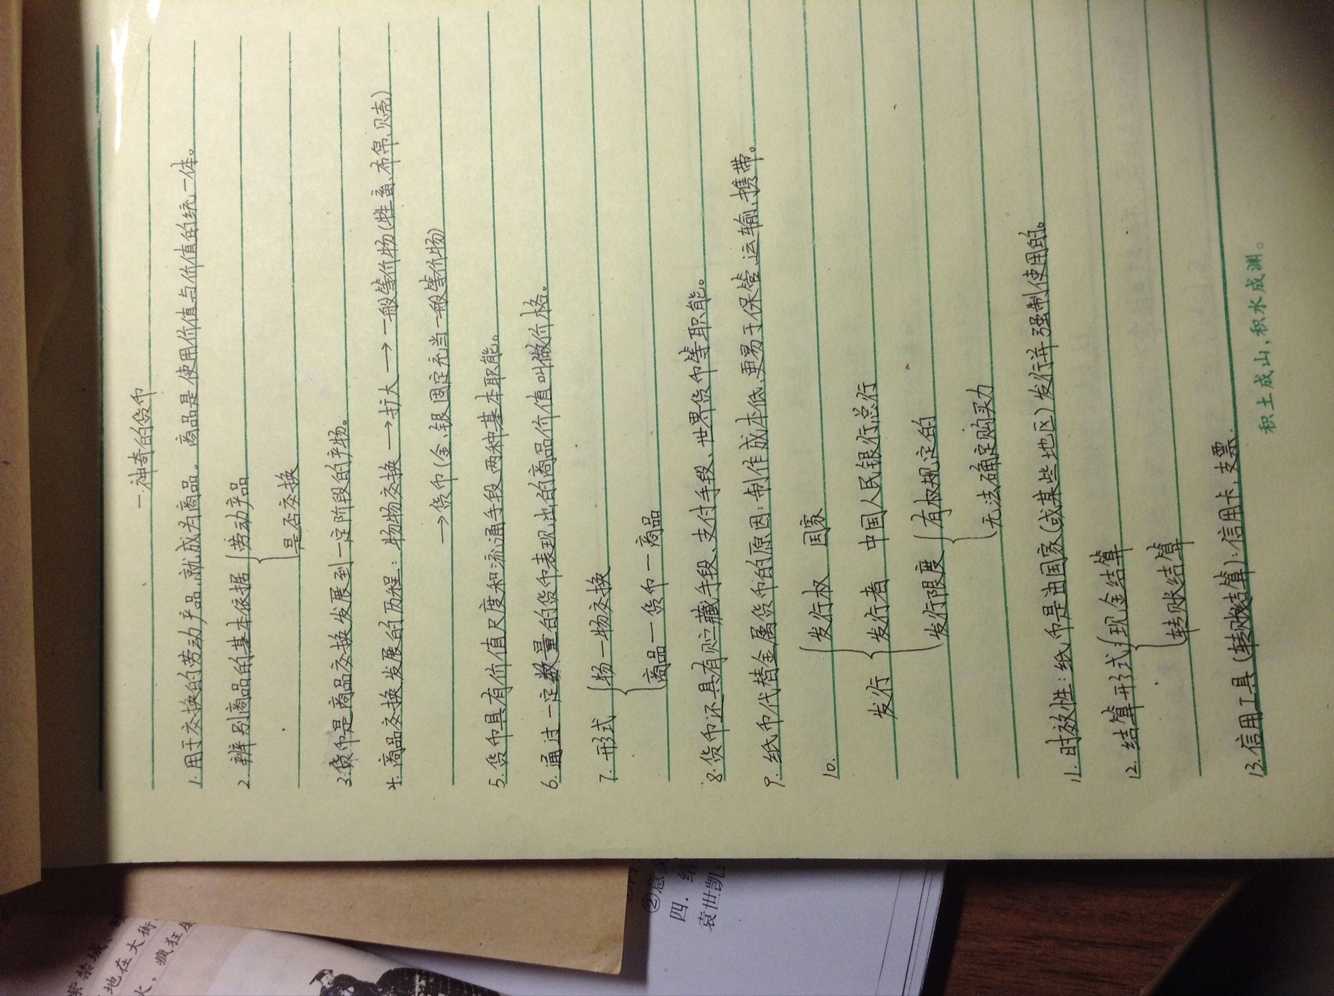 一.神奇的货币
1.用于交换的劳动产品,就成为商品。商品是使用价值与价值的统一体。
2.辨别商品的基本依据{劳动产品
是否交换
3.货币是商品交换发展到一定阶段的产物。
4.商品交换发展的历程:物物交换→扩大→一般等价物(牲畜、布帛、贝壳)
→货币(金、银固定充当一般等价物)
5.货币具有价值尺度和流通手段两种基本职能。
6.通过一定数量的货币表现出的商品价值叫做价格。
7.形式{物一物交换
商品一货币一商品
8.货币还具有贮藏手段、支付手段、世界货币等职能。
9.纸币代替金属货币的原因:制作成本低、更易于保管、运输、携带。
10.
发行{发行权 国家
发行者 中国人民银行总行
发行限度{有权规定的
无法确定购买力
11.时效性:纸币是由国家(或某些地区)发行并强制使用的。
12.结算形式{现金结算
转账结算
13.信用工具(转账结算):信用卡、支票.
积土成山,积水成渊。
紫禁城
地在大街
火,疯狂
四.
袁世凯